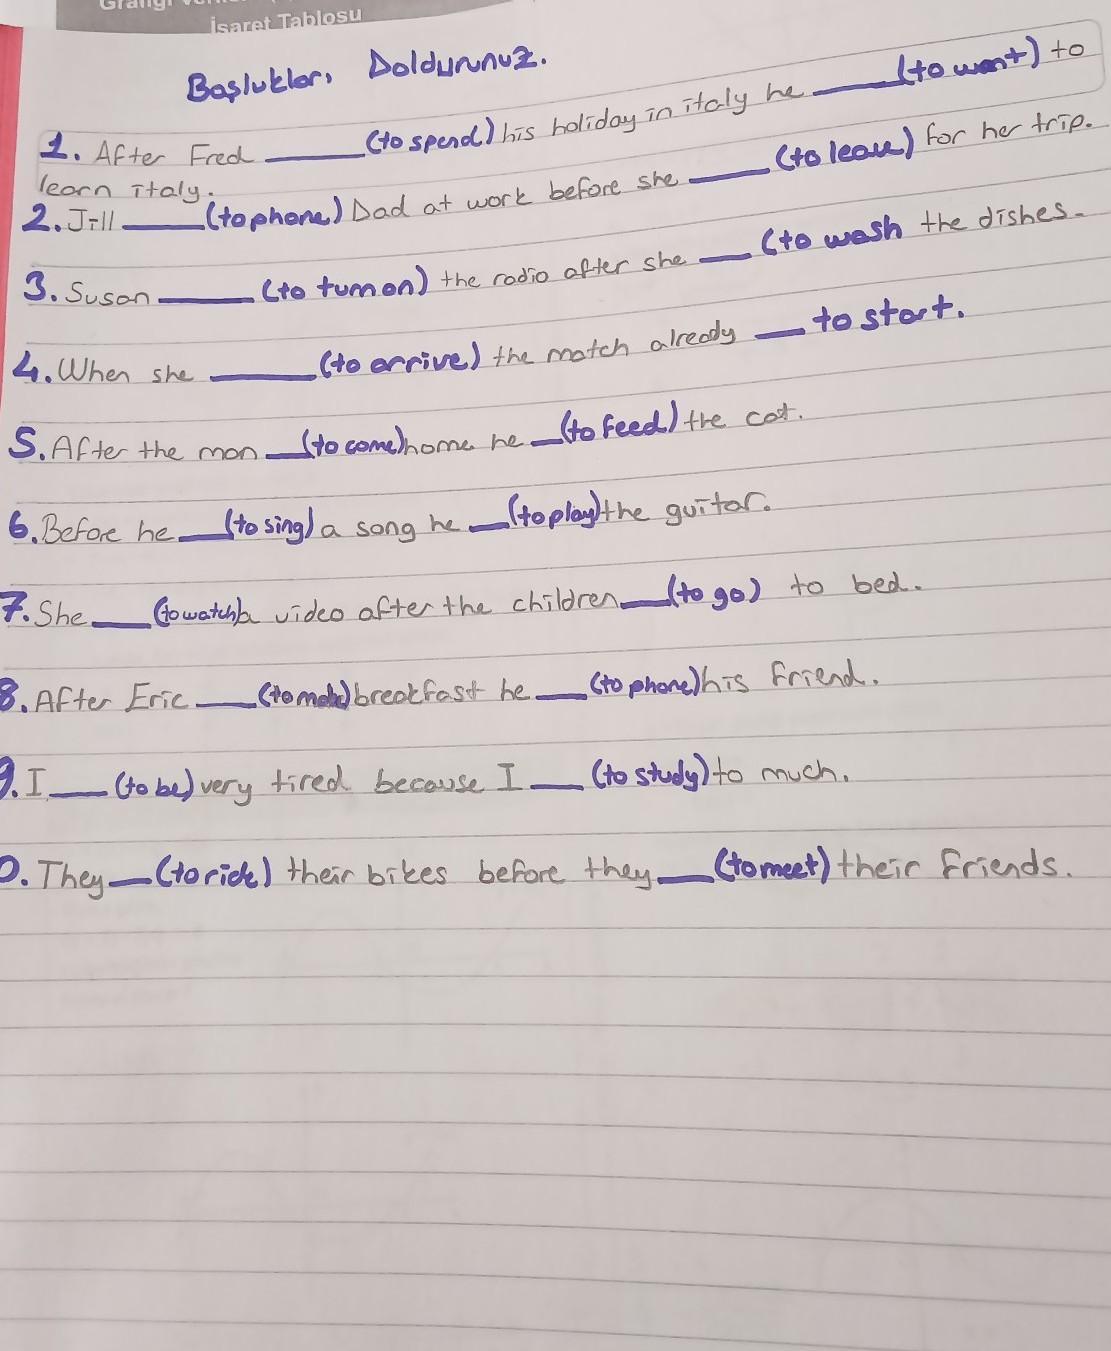 İşaret Tablosu
Boşlukları Doldurunuz.
1. After Fred ______ (to spend) his holiday in italy he ______ (to want) to
learn italy.
2. Jill ______ (to phone) Dad at work before she ______ (to leave) for her trip.
3. Susan ______ (to turn on) the radio after she ____ (to wash the dishes.
4. When she ______ (to arrive) the match already ____ to start.
5. After the man ___ (to come) home he ___ (to feed) the cat.
6. Before he ___ (to sing) a song he ___ (to play) the guitar.
7. She ____ (to watch) a video after the children ___ (to go) to bed.
8. After Eric ____ (to make) breakfast he ___ (to phone) his friend.
9. I ____ (to be) very tired because I ___ (to study) to much.
0. They ___ (to ride) their bikes before they ____ (to meet) their friends.